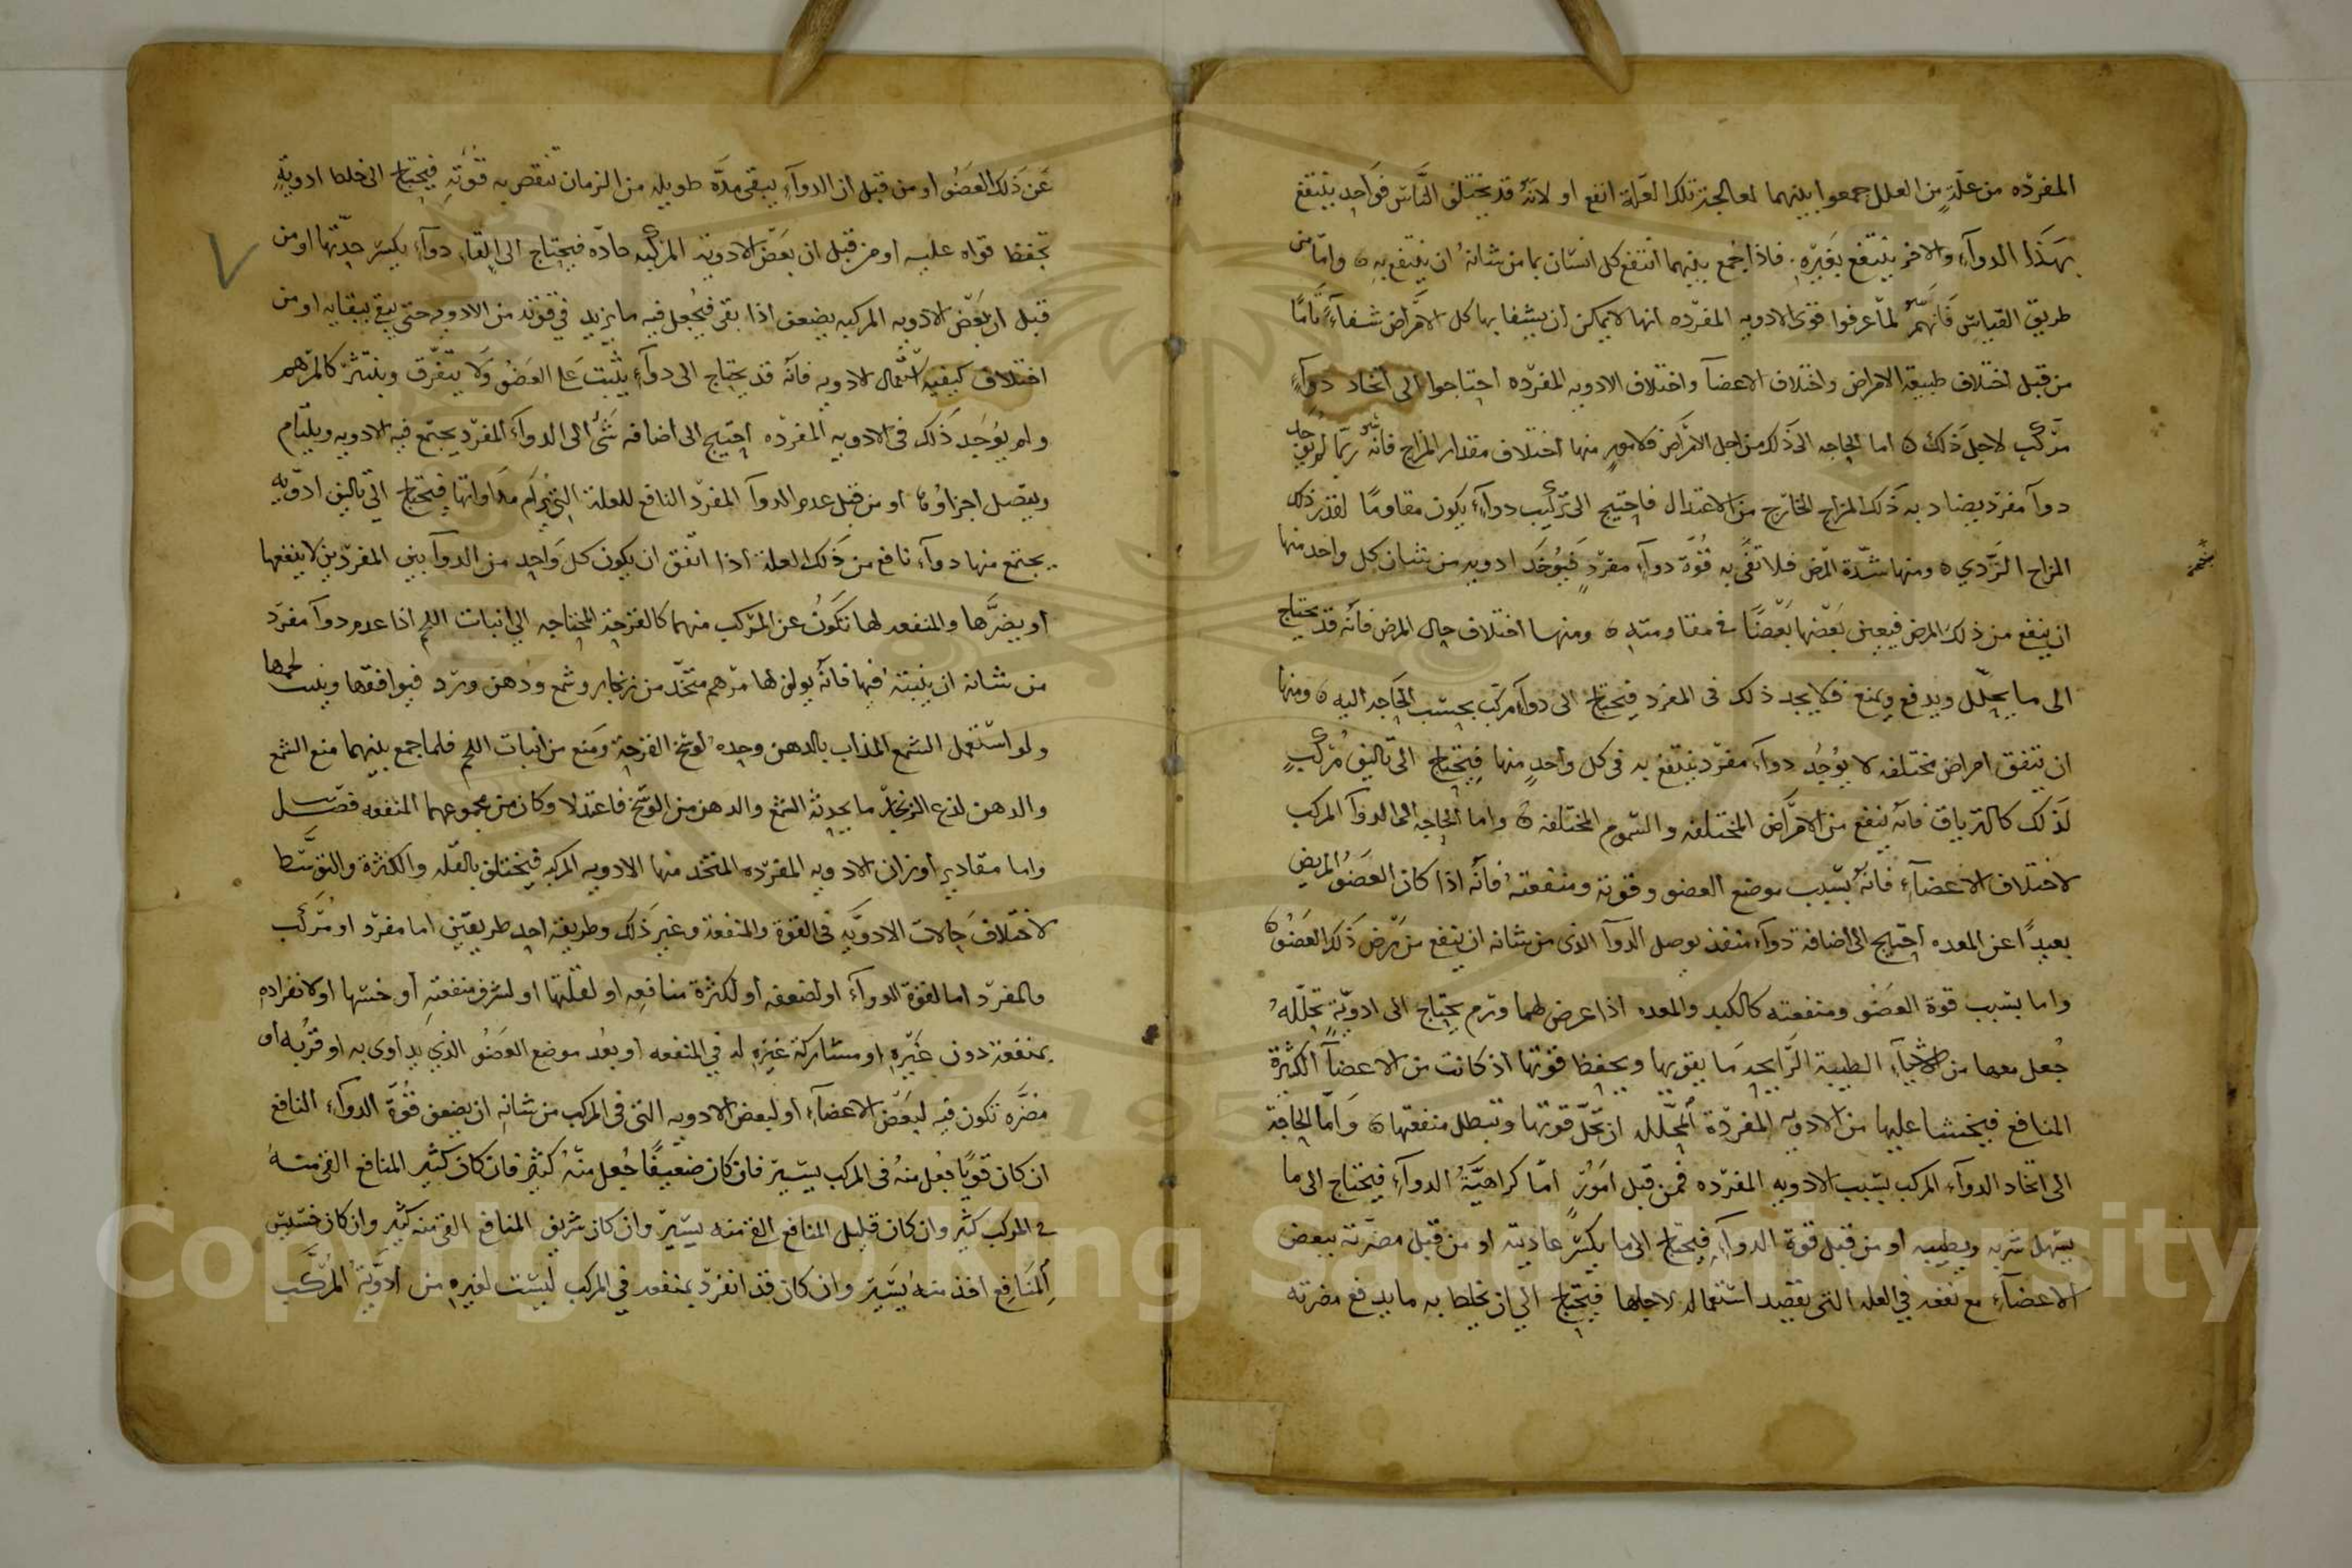 المفرده من علّةٍ من العلل جمعوا بينهما لمعالجة تلك العلّة انفع او لانّه قد يختلف النّاس فواحد ينتفع
بهَذا الدوآءِ والاخر ينتفع بغَيرِه . فاذا جُمع بينهما انتفع كل انسان بما من شانهُ ان ينتفع بهِ ٥ وامّا من
طريق القياسِ فَانهمُ لمّا عرفوا قوى الادويه المفرّده انها لا يمكن ان يشفا بها كل الامَراض شفآءً تامًا
من قبل اختلاف طبيعة الامراض واختلاف الاعضآ واختلاف الادويه المفرّده احتاجوا الى اتخاد دوآءٍ
مرّكبٍ لاجل ذَلك ٥ اما الحاجه الى ذَلك من اجل الامَراض فلامورٍ منها اختلاف مقدار المزاج فانّه ربّما لم يُوجَد
دوآ مفرّد يضاد به ذَلك المزاج الخارج من الاعتدال فاحتيج الى تركيب دوآءٍ يكون مقاومًا لقدر ذلك
المزاج الرّدي ٥ ومنها شدّة المرض فلا تفَى به قُوّة دوآءٍ مفرّدٍ فَيُوخَد ادويه من شان كل واحد منها
ان ينفع من ذلك المرض فيعين بَعضها بَعضًا فى مقاومته ٥ ومنها اختلاف حال المرض فانّه قد يحتاج
الى ما يحلّل ويدفع ويمنع فلا يجد ذلك فى المفرد فيحتاج الى دوآءٍ مركّب بحسَب الحَاجه اليه ٥ ومنها
ان تتفق امراض مختلفه لا يُوجُد دوآء مفرّد ينتفع به فى كل واحدٍ منها فيحتاج الى تاليف مُركّبٍ
لذَلك كالترياق فانّه ينفع من الامَراض المختلفه والسّموم المختلفه ٥ واما الحاجه الى الدوآ المركب
لاختلاف الاعضآءِ فانّهُ بسَبب موضع العضو وقوته ومنفعتهُ فانّه اذا كان العضَوُ المريض
بعيدًا عن المعده احتيج الى اضافة دوآء منفذ يوصل الدوآ الذى من شانه ان ينفع من مَرض ذَلك العضَوُ ٥
واما بسَبب قوة العضَو ومنفعته كالكبد والمعده اذا عرض لهما ورم يحتاج الى ادويّةٍ تحلّلهُ
جُعل معها من الاشيآءِ الطيبة الرّايحه مَا يقويها ويحفظ قوتها اذ كانت من الاعضآ الكثيرة
المنافع فيخشا عليها من الادويه المفردّة المُحلّله ان تحلّ قوتها وتبطل منفعتها ٥ وَامّا الحاجة
الى اتخاد الدوآء المركب بسَبب الادويه المفرّده فمن قبل امُورٍ امّا كراهيَّةُ الدوآءِ فيحتاج الى ما
يسَهل شربه ويطيبه او من قبل قوة الدوآءِ فيحتاج الى ما يكسَر عاديته او من قبل مضرّته ببعض
الاعضآءِ مع نفعه في العله التي يقصد استعماله لاجلها فيحتاج الى ان يخلط به ما يدفع مضرته
عَن ذَلك العضَوُ او من قبل ان الدوآءِ يبقى مدّه طويله من الزمان تنقص به قوّته فيحتاج الى خلط ادويةٍ
تحفظ قواه عليه او من قبل ان بعَض الادوية المركبه حادّه فيحتاج الى القاءِ دوآءٍ يكسر حدتها او من
قبل ان بعَض الادويه المركبه يضعف اذا بقى فيُجعل فيه ما يزيد في قوته من الادويه حتى يبقى ببقايه او من
اختلاف كيفيه استعمال الادويه فانّه قد يحتاج الى دوآءٍ يثبت عَلى العَضوُ وَلا يتفرّق وينتثر كالمرَهم
ولم يوُجَد ذَلك فى الادويه المفردّه احتيج الى اضافه شَىٌ الى الدوآءَ المفرّد يجتمع فيه الادويه ويليَام
ويتصل اجزاوُه او من قبل عدم الدوآ المفرّد النافع للعلة التي يُرام مداواتها فيحتاج الى تاليف ادويه
يجتمع منها دوآء نافع من ذَلك العلة اذا اتّفق ان يكون كل وَاحد من الدوآيين المفرّدين لا ينفعها
أو يضرَّها والمنفعه لها تكَونُ عن المرّكب منهما كالقرحة المحتاجه الى انبات اللحم اذا عدم دوآ مفرّد
من شانه ان ينبتهُ فيها فانّه يولف لها مرَهم متخّد من زنجار وشمع ودُهن ورد فيوافقها وينبت لحمها
ولو استعمل الشمع المذاب بالدهن وحدهُ لوسّخ القرحة وَمنع من انبات اللحم فلما جمع بينهما منع الشمع
والدهن لذع الزنجار ما يحدثهُ الشمع والدهن من الوسَخ فاعتدلا وكان من مجموعهما المنفعه فصَل
واما مقادير أوزان الادويه المفرّده المتّخد منها الادويه المركبه فيختلف بالقلّه والكثرة والتوسَّط
لاختلاف حالات الادويَّهِ فى القوة والمنفعة وغير ذَلك وطريقة احد طريقَين اما مفرّد او مُركَّب
فالمفرّد اما لقوة الدوآءَ او لضعفه أو لكثرة منافعِه او لقلّتها او لشرف منفعتهِ أو خستها او لانفرادهِ
بمنفعةٍ دون غَيرهِ او مشاركة غيرهِ له في المنفعه أو بعُد موضع العضَوُ الذي يدَاوى به او قرُبه او
مضرَّه تكون فيه لبَعَض الاعضآءِ او لبعض الادويه التى فى المركب من شانه ان يضعف قوُّة الدوآء النافع
ان كان قويًا جُعل منهُ فى المركب يسَيرٌ فان كان ضعَيفًا جُعل منّهُ كثيٌر فان كان كَثير المنافع القى منهُ
فى المركب كثير وان كان قليل المنافع القى منه يسيرٌ وان كان شريف المنافع القى منه كثير وان كان خسَيسَ
المنَافِع اخذ منه يُسَيرٌ وان كان قد انفرّد بمنفعه في المركب ليسَت لغيرهِ من ادوَّيةُ المرّكَّب
Copyright © King Saud University